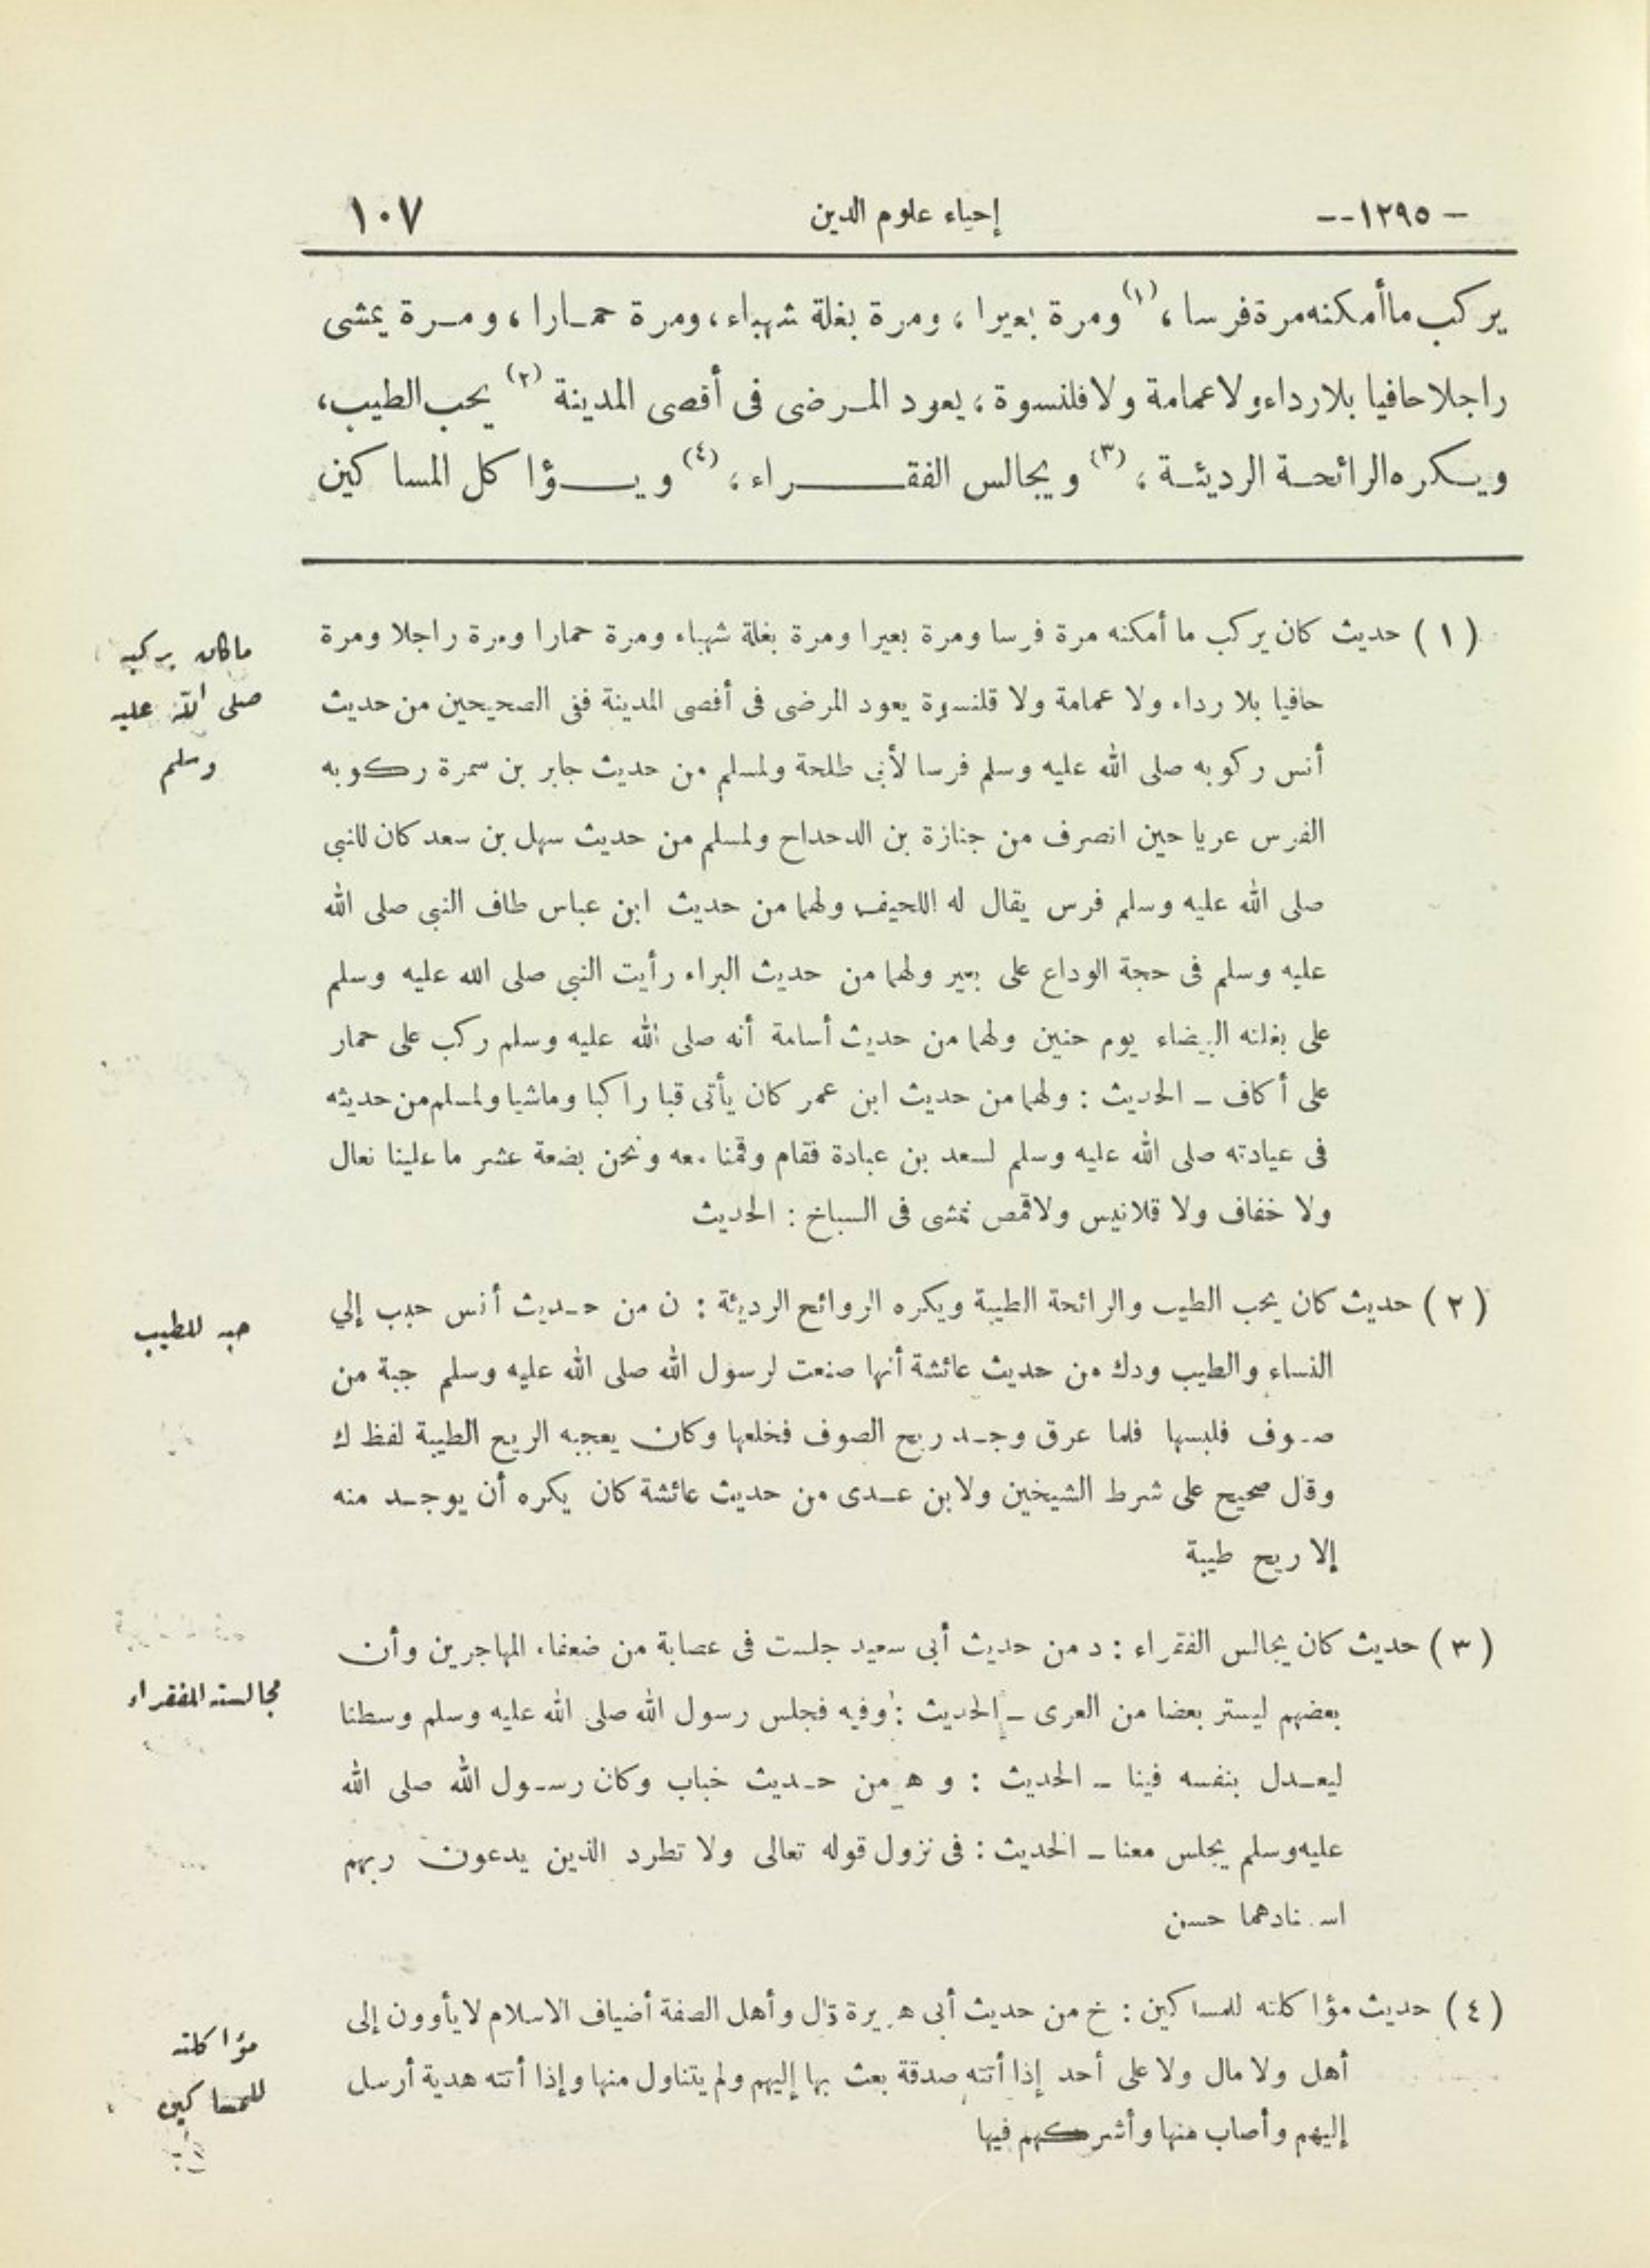 - ١٢٩٥ --
إحياء علوم الدين
١٠٧
يركب ما أمكنه مرة فرسا ، (١) ومرة بعيرا ، ومرة بغلة شهباء ، ومرة حمارا ، ومرة يمشى
راجلا حافيا بلا رداء ولا عمامة ولا قلنسوة ، يعود المرضى فى أقصى المدينة (٢) يحب الطيب ،
ويكره الرائحة الرديئة ، (٣) ويجالس الفقراء ، (٤) ويؤاكل المساكين
(١) حديث كان يركب ما أمكنه مرة فرسا ومرة بعيرا ومرة بغلة شهباء ومرة حمارا ومرة راجلا ومرة
حافيا بلا رداء ولا عمامة ولا قلنسوة يعود المرضى فى أقصى المدينة ففى الصحيحين من حديث
أنس ركوبه صلى الله عليه وسلم فرسا لأبى طلحة ولمسلم من حديث جابر بن سمرة ركوبه
الفرس عريا حين انصرف من جنازة بن الدحداح ولمسلم من حديث سهل بن سعد كان للنبى
صلى الله عليه وسلم فرس يقال له اللحيف ولهما من حديث ابن عباس طاف النبى صلى الله
عليه وسلم فى حجة الوداع على بعير ولهما من حديث البراء رأيت النبى صلى الله عليه وسلم
على بغلته البيضاء يوم حنين ولهما من حديث أسامة أنه صلى الله عليه وسلم ركب على حمار
على أكاف - الحديث : ولهما من حديث ابن عمر كان يأتى قبا راكبا وماشيا ولمسلم من حديثه
فى عيادته صلى الله عليه وسلم لسعد بن عبادة فقام وقمنا معه ونحن بضعة عشر ما علينا نعال
ولا خفاف ولا قلانيس ولا قمص نمشى فى السباخ : الحديث
(٢) حديث كان يحب الطيب والرائحة الطيبة ويكره الروائح الرديئة : ن من حديث أنس حبب إلي
النساء والطيب ودك من حديث عائشة أنها صنعت لرسول الله صلى الله عليه وسلم جبة من
صوف فلبسها فلما عرق وجد ريح الصوف فخلعها وكان يعجبه الريح الطيبة لفظ ك
وقال صحيح على شرط الشيخين ولابن عدى من حديث عائشة كان يكره أن يوجد منه
إلا ريح طيبة
(٣) حديث كان يجالس الفقراء : د من حديث أبى سعيد جلست فى عصابة من ضعفاء المهاجرين وأن
بعضهم ليستر بعضا من العرى - الحديث : وفيه فجلس رسول الله صلى الله عليه وسلم وسطنا
ليعدل بنفسه فينا - الحديث : و ه من حديث خباب وكان رسول الله صلى الله
عليه وسلم يجلس معنا - الحديث : فى نزول قوله تعالى ولا تطرد الذين يدعون ربهم
اسنادهما حسن
(٤) حديث مؤاكلته للمساكين : خ من حديث أبى هريرة قال وأهل الصفة أضياف الاسلام لا يأوون إلى
أهل ولا مال ولا على أحد إذا أتته صدقة بعث بها إليهم ولم يتناول منها وإذا أتته هدية أرسل
إليهم وأصاب منها وأشركهم فيها
ما كان يركبه
صلى الله عليه
وسلم
حبه للطيب
مجالسته للفقراء
مؤاكلته
للمساكين